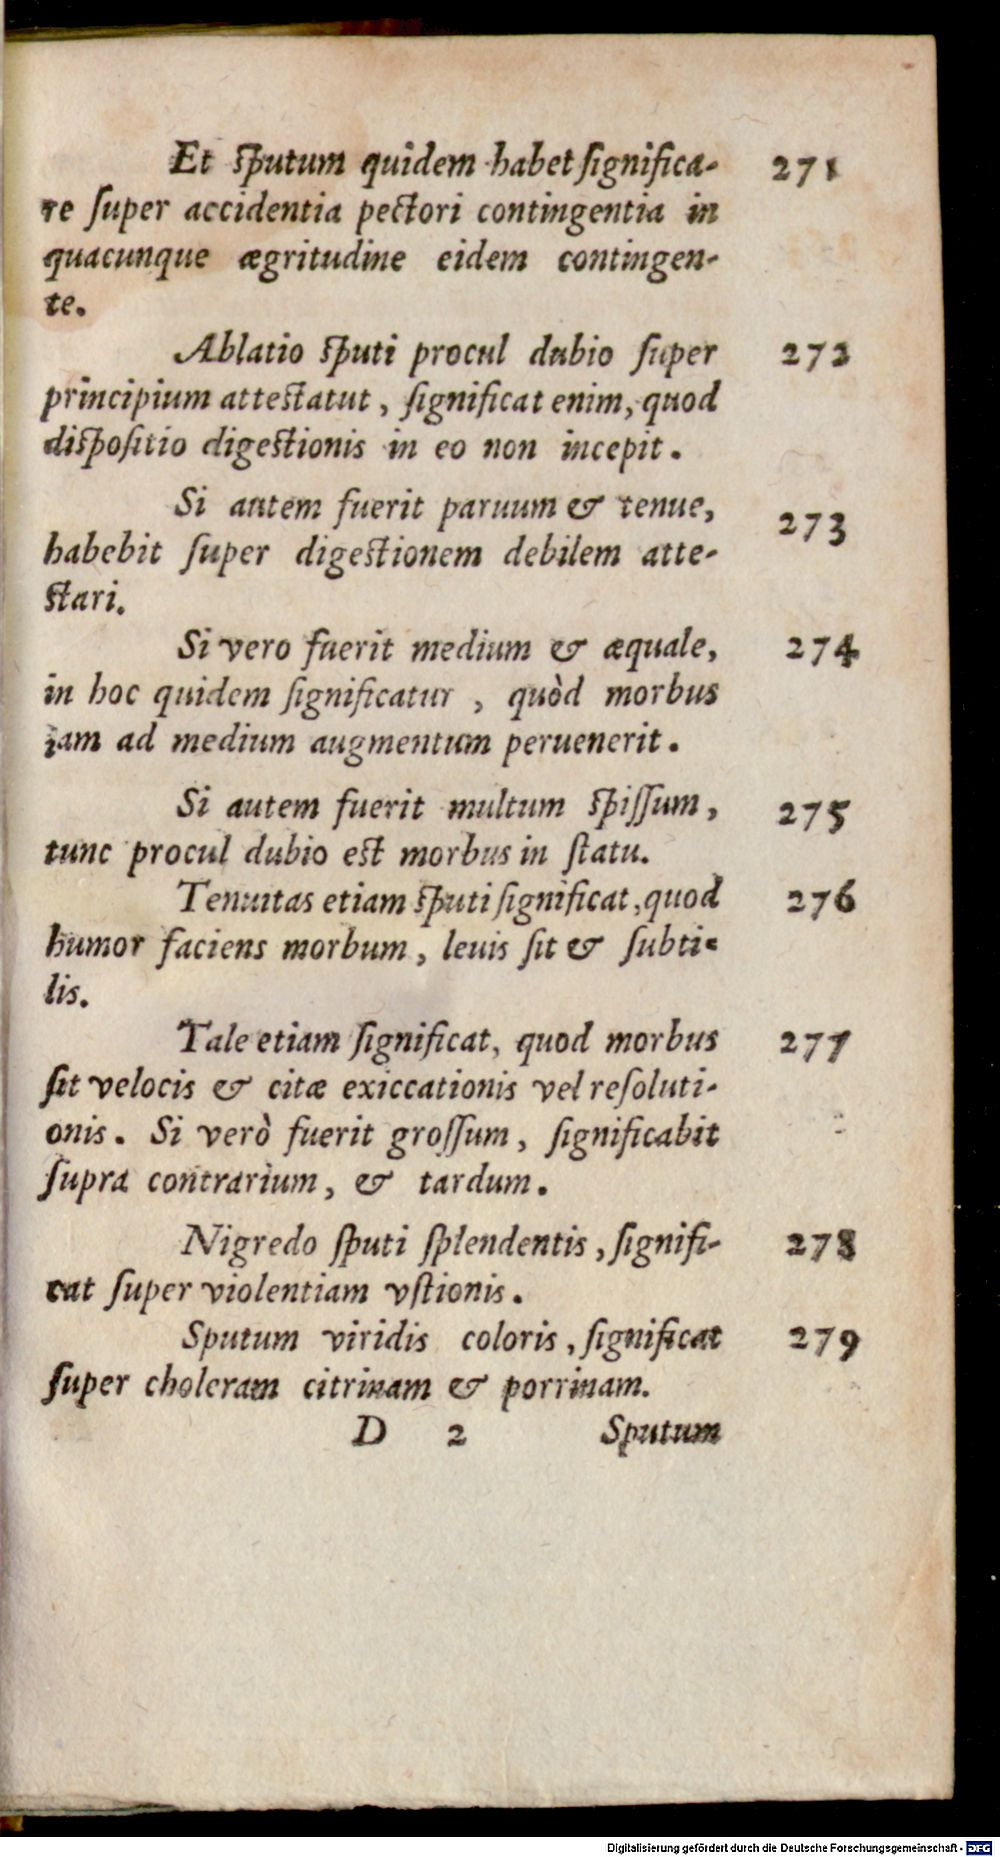 Et ſputum quidem habet ſignifica- 271
re ſuper accidentia pectori contingentia in
quacunque ægritudine eidem contingen-
te.
Ablatio ſputi procul dubio ſuper 272
principium atteſtatut, ſignificat enim, quod
diſpoſitio digeſtionis in eo non incepit.
Si autem fuerit paruum & tenue, 273
habebit ſuper digeſtionem debilem atte-
ſtari.
Si vero fuerit medium & æquale, 274
in hoc quidem ſignificatur, quòd morbus
iam ad medium augmentum peruenerit.
Si autem fuerit multum ſpiſſum, 275
tunc procul dubio eſt morbus in ſtatu.
Tenuitas etiam ſputi ſignificat, quod 276
humor faciens morbum, leuis ſit & ſubti-
lis.
Tale etiam ſignificat, quod morbus 277
ſit velocis & citæ exiccationis vel reſoluti-
onis. Si verò fuerit groſſum, ſignificabit
ſupra contrarium, & tardum.
Nigredo ſputi ſplendentis, ſignifi- 278
cat ſuper violentiam vſtionis.
Sputum viridis coloris, ſignificat 279
ſuper choleram citrinam & porrinam.
D 2 Sputum
Digitalisierung gefördert durch die Deutsche Forschungsgemeinschaft - DFG